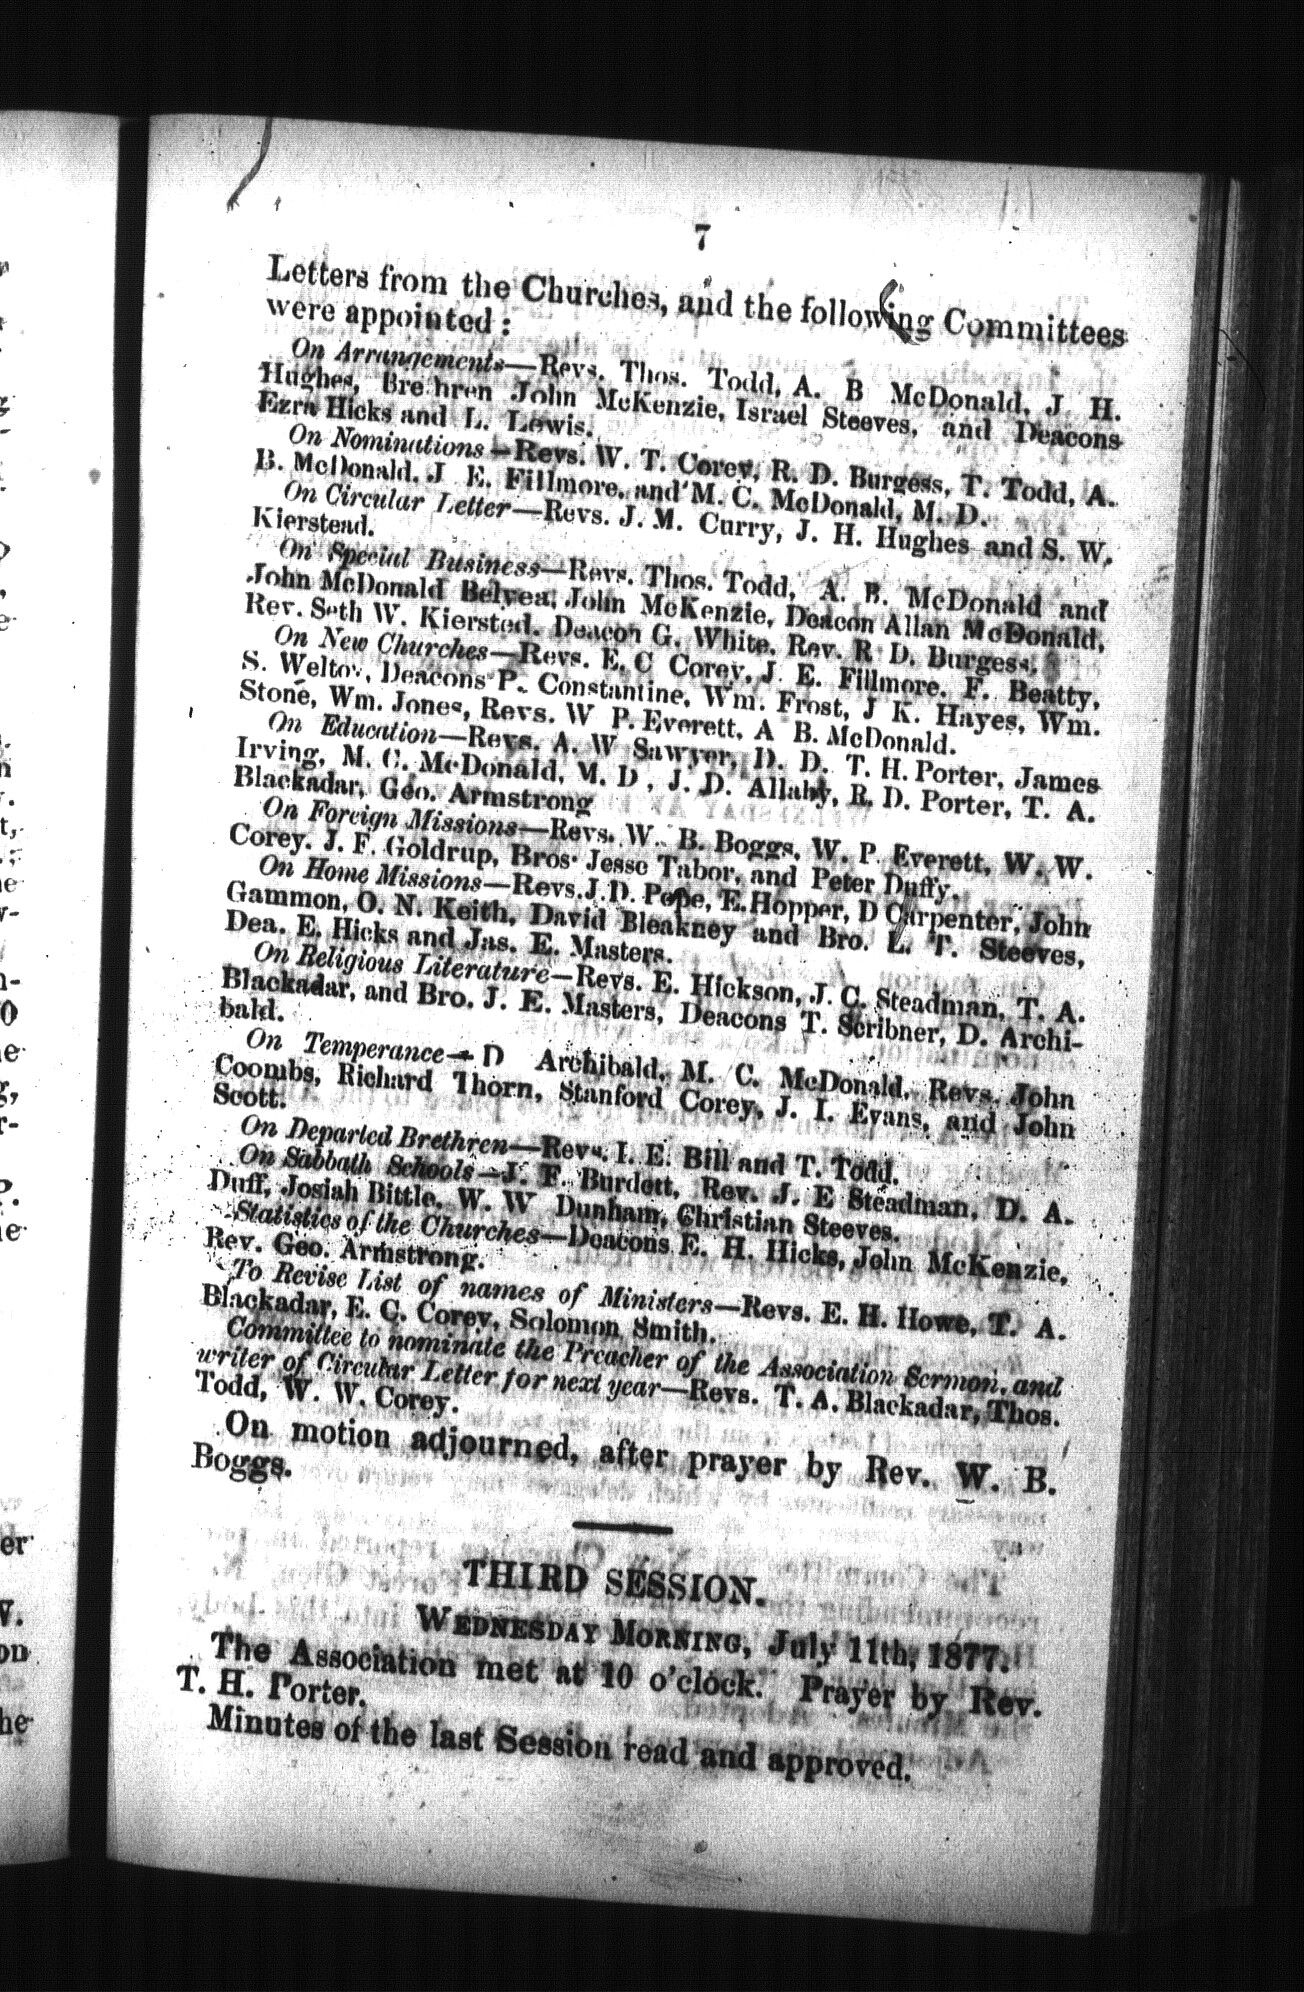 7
Letters from the Churches, and the following Committees
were appointed :
On Arrangements—Revs. Thos. Todd, A. B McDonald, J H.
Hughes, Brethren John McKenzie, Israel Steeves, and Deacons
Ezra Hicks and L. Lewis.
On Nominations—Revs. W. T. Corey, R. D. Burgess, T. Todd, A.
B. McDonald, J E. Fillmore, and M. C. McDonald, M. D.
On Circular Letter—Revs. J. M. Curry, J. H. Hughes and S. W.
Kierstead.
On Special Business—Revs. Thos. Todd, A. B. McDonald and
John McDonald Belyea, John McKenzie, Deacon Allan McDonald,
Rev. Seth W. Kiersted, Deacon G. White, Rev. R D. Burgess.
On New Churches—Revs. E. C Corey, J. E. Fillmore, F. Beatty,
S. Welton, Deacons P. Constantine, Wm. Frost, J K. Hayes, Wm.
Stone, Wm. Jones, Revs. W P. Everett, A B. McDonald.
On Education—Revs. A. W Sawyer, D. D. T. H. Porter, James
Irving, M. C. McDonald, M. D, J. D. Allaby, R. D. Porter, T. A.
Blackadar, Geo. Armstrong
On Foreign Missions—Revs. W. B. Boggs, W. P Everett, W. W.
Corey. J. F. Goldrup, Bros· Jesse Tabor, and Peter Duffy.
On Home Missions—Revs. J. D. Pope, E. Hopper, D Carpenter, John
Gammon, O. N. Keith, David Bleakney and Bro. L. T. Steeves,
Dea. E. Hicks and Jas. E. Masters.
On Religious Literature—Revs. E. Hickson, J. C. Steadman, T. A.
Blackadar, and Bro. J. E. Masters, Deacons T. Scribner, D. Archi-
bald.
On Temperance—D Archibald, M. C. McDonald, Revs. John
Coombs, Richard Thorn, Stanford Corey, J. I. Evans, and John
Scott.
On Departed Brethren—Revs. I. E. Bill and T. Todd.
On Sabbath Schools—J. F. Burdett, Rev. J. E Steadman, D. A.
Duff, Josiah Bittle, W. W Dunham, Christian Steeves.
Statistics of the Churches—Deacons E. H. Hicks, John McKenzie,
Rev. Geo. Armstrong.
To Revise List of names of Ministers—Revs. E. H. Howe, T. A.
Blackadar, E. C. Corey, Solomon Smith.
Committee to nominate the Preacher of the Association Sermon, and
writer of Circular Letter for next year—Revs. T. A. Blackadar, Thos.
Todd, W. W. Corey.
On motion adjourned, after prayer by Rev. W. B.
Boggs.
THIRD SESSION.
WEDNESDAY MORNING, July 11th, 1877.
The Association met at 10 o'clock. Prayer by Rev.
T. H. Porter.
Minutes of the last Session read and approved.